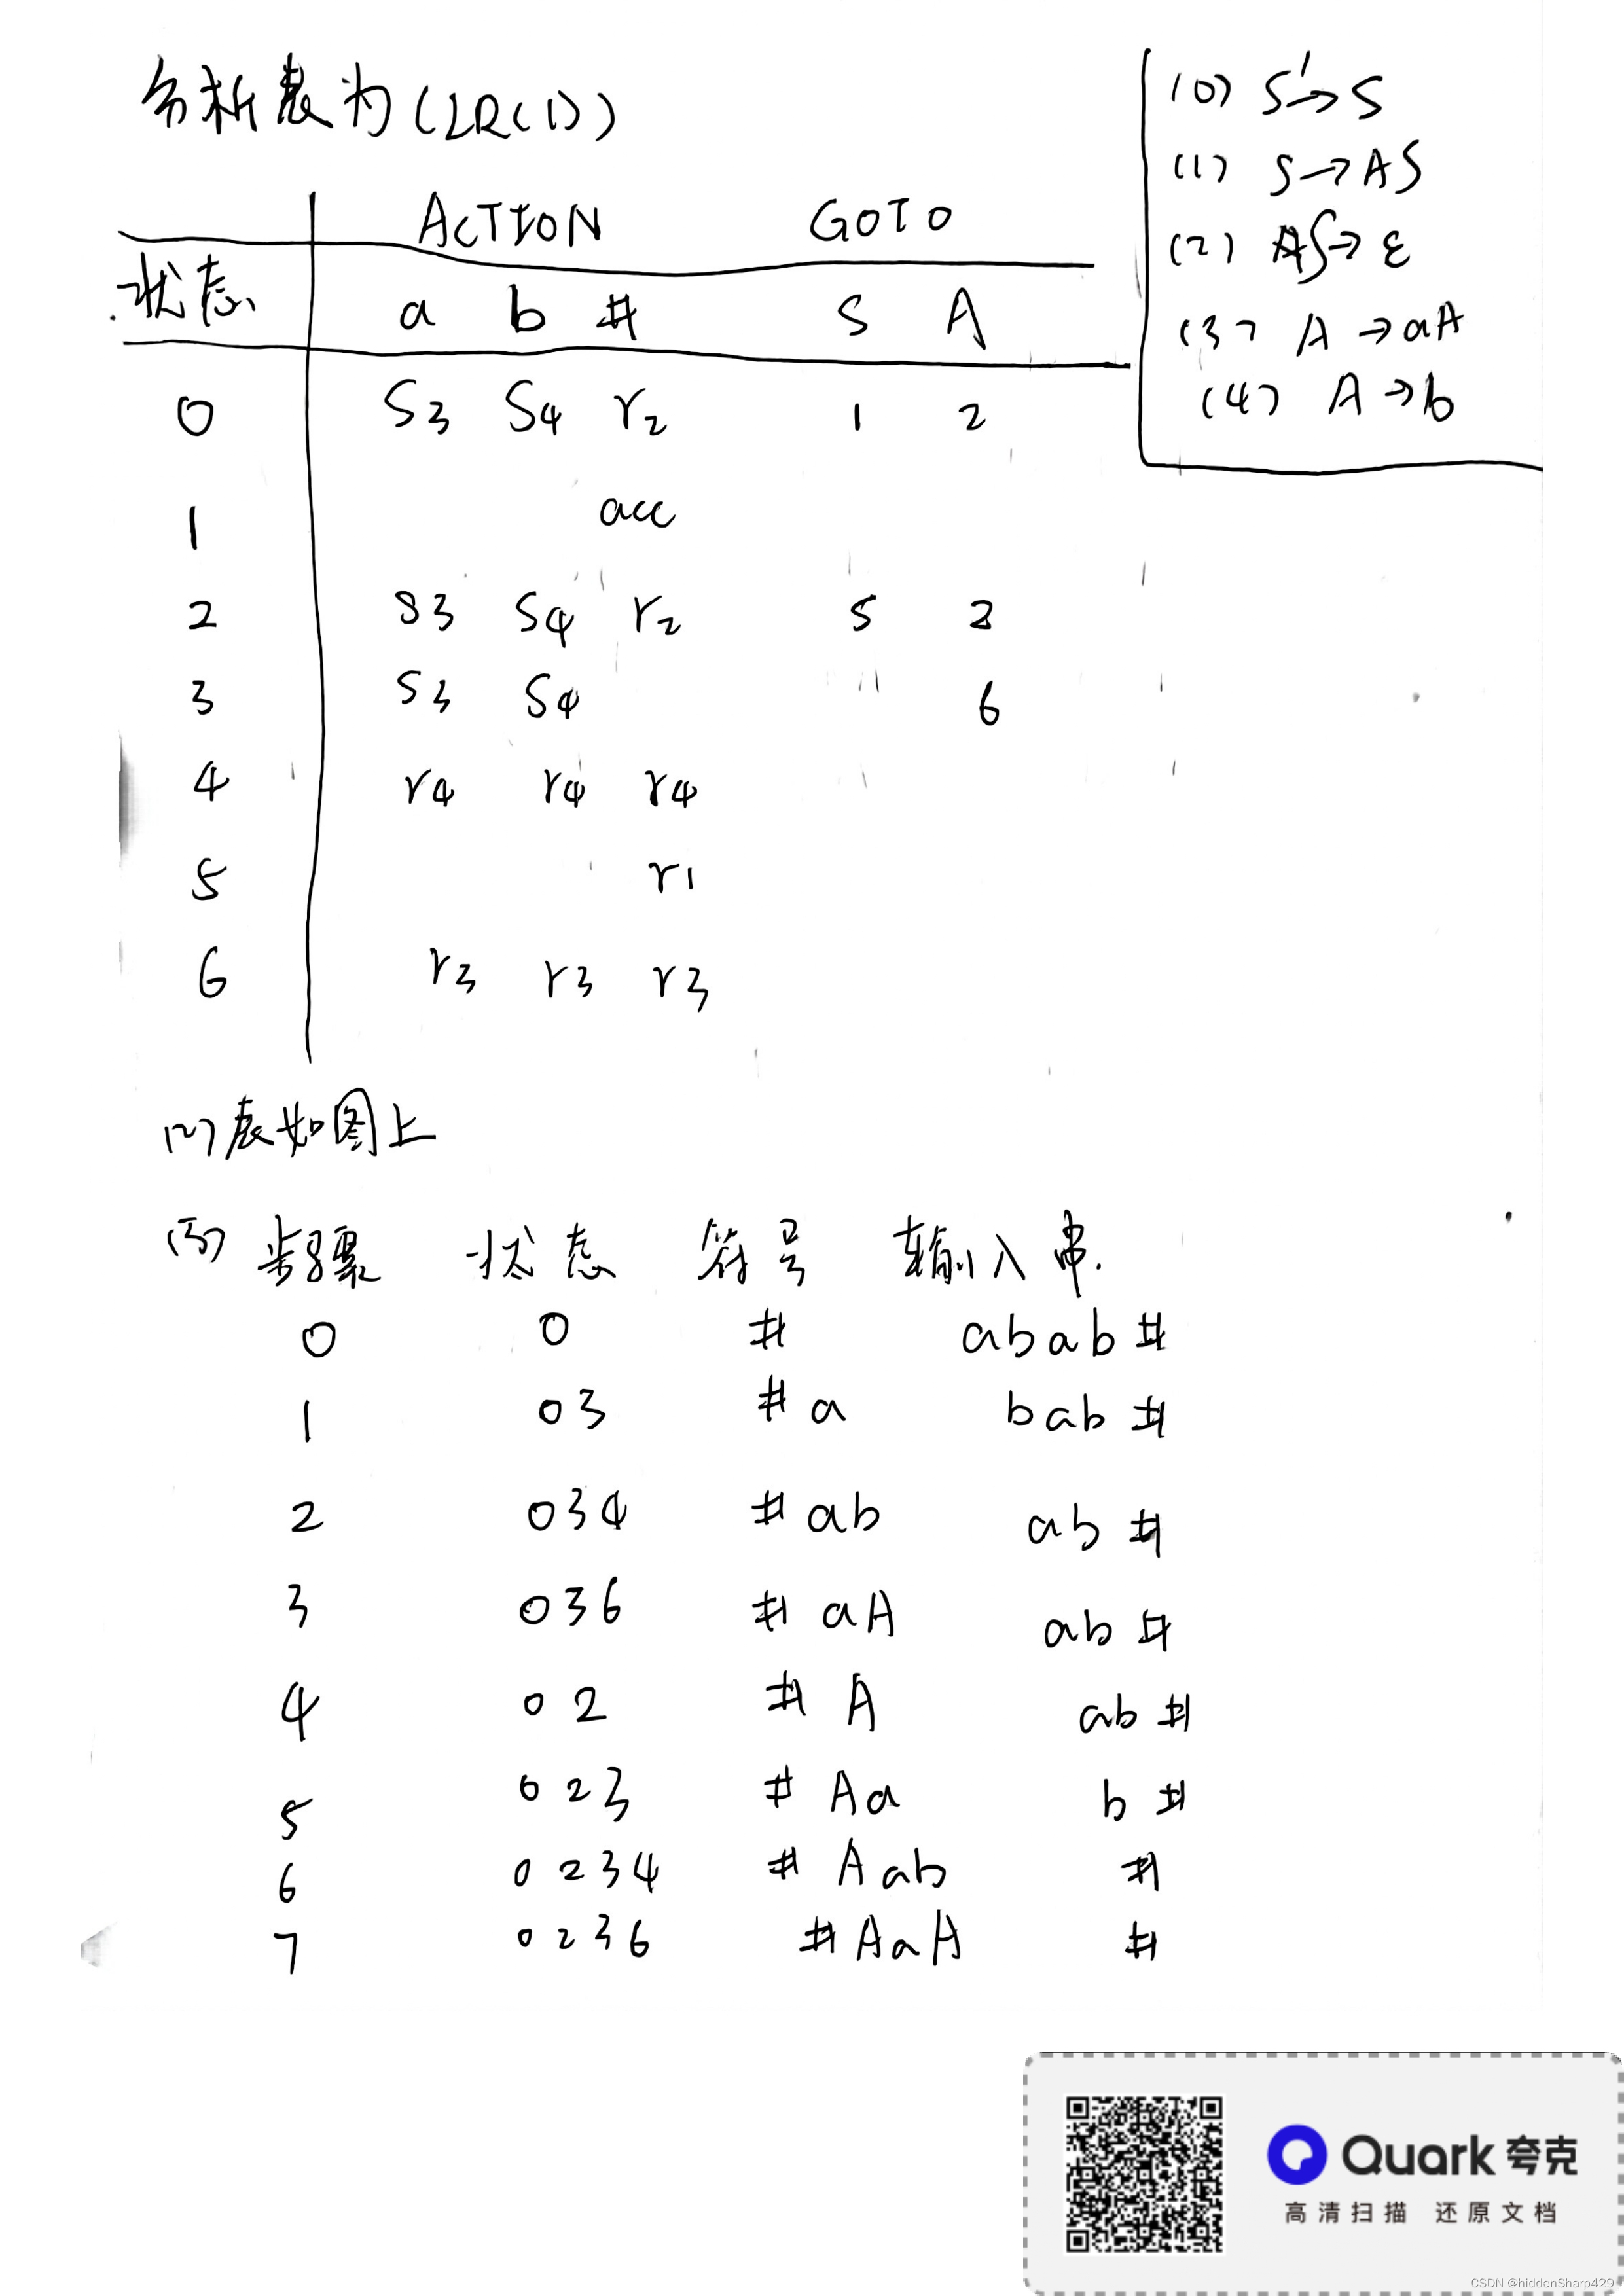 分析表为(LR(1))
(0) S'→S
(1) S→AS
(2) S→ε
(3) A→aA
(4) A→b
ACTION GOTO
状态 a b # S A
0 S3 S4 r2 1 2
1 acc
2 S3 S4 r2 5 2
3 S3 S4 6
4 r4 r4 r4
5 r1
6 r3 r3 r3
(2) 表如图上
(3) 步骤 状态 符号 输入串.
0 0 # abab#
1 03 #a bab#
2 034 #ab ab#
3 036 #aA ab#
4 02 #A ab#
5 023 #Aa b#
6 0234 #Aab #
7 0236 #AaA #
Quark 夸克
高清扫描 还原文档
CSDN @hiddenSharp429